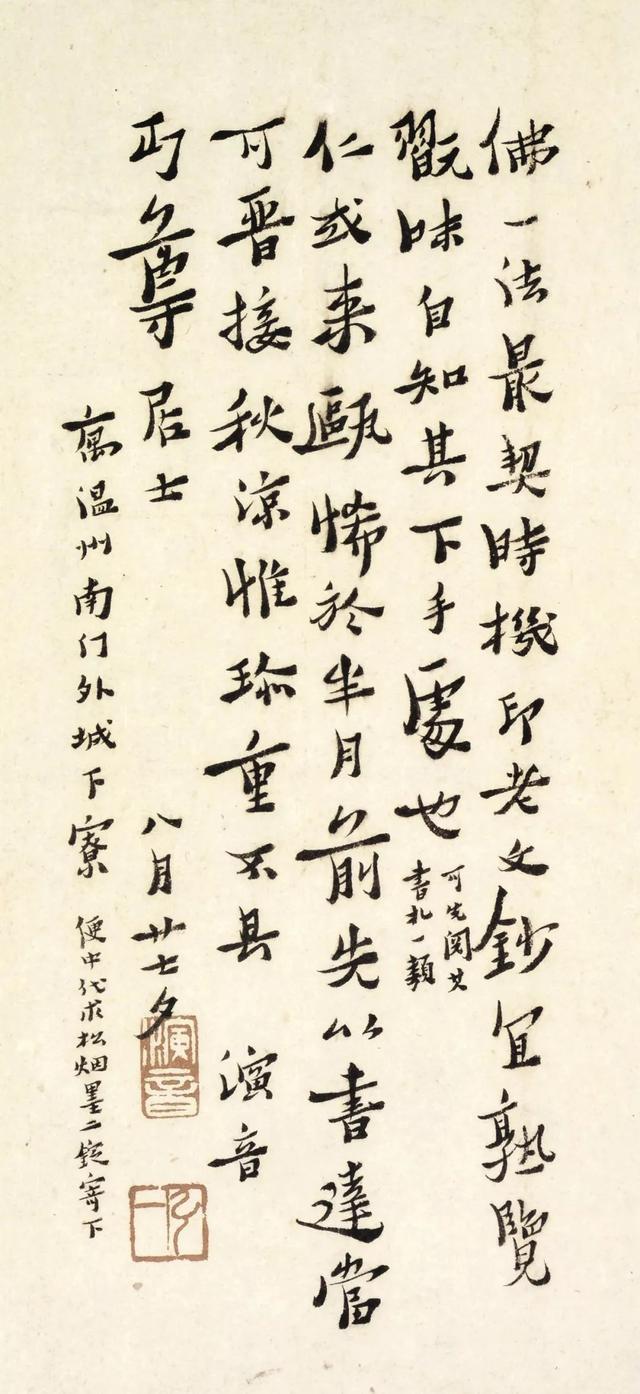 佛一法最契時機印老文鈔宜熟覽
翫味自知其下手處也
可先閱其
書札一類
仁或来甌悕於半月前先以書達當
可晋接秋涼惟珍重不具 演音
丏尊居士 八月廿七夕
寓温州南门外城下寮 便中代求松烟墨二錠寄下
演音
弘一